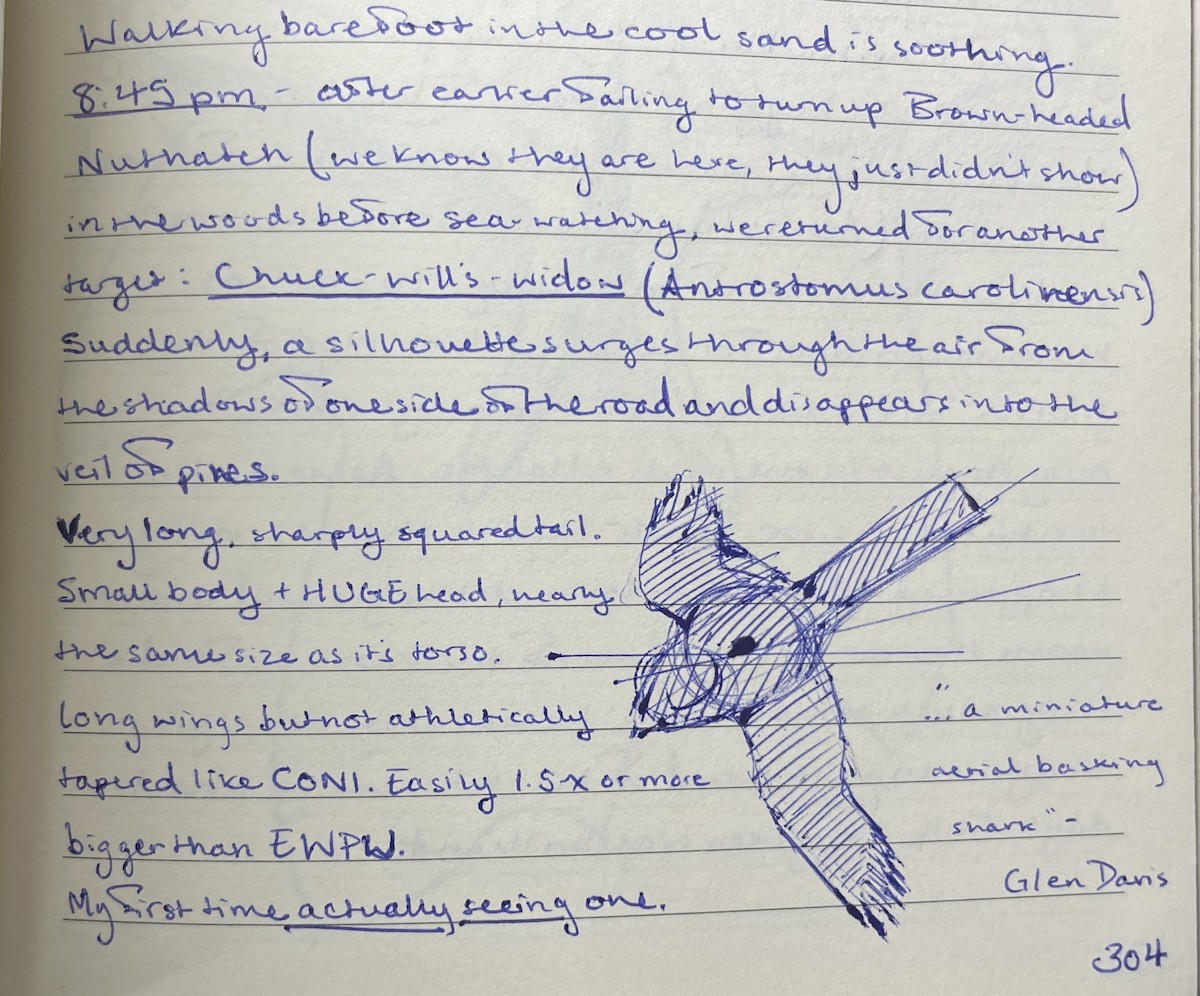 Walking barefoot in the cool sand is soothing.
8:45 pm - after earlier failing to turn up Brown-headed
Nuthatch (we know they are here, they just didn't show)
in the woods before sea-watching, we returned for another
target: Chuck-will's-widow (Antrostomus carolinensis)
Suddenly, a silhouette surges through the air from
the shadows of one side of the road and disappears into the
veil of pines.
Very long, sharply squared tail.
Small body + HUGE head, nearly
the same size as its torso.
Long wings but not athletically
tapered like CONI. Easily 1.5x or more
bigger than EWPW.
My first time actually seeing one.
"... a miniature
aerial basking
shark" -
Glen Davis
304